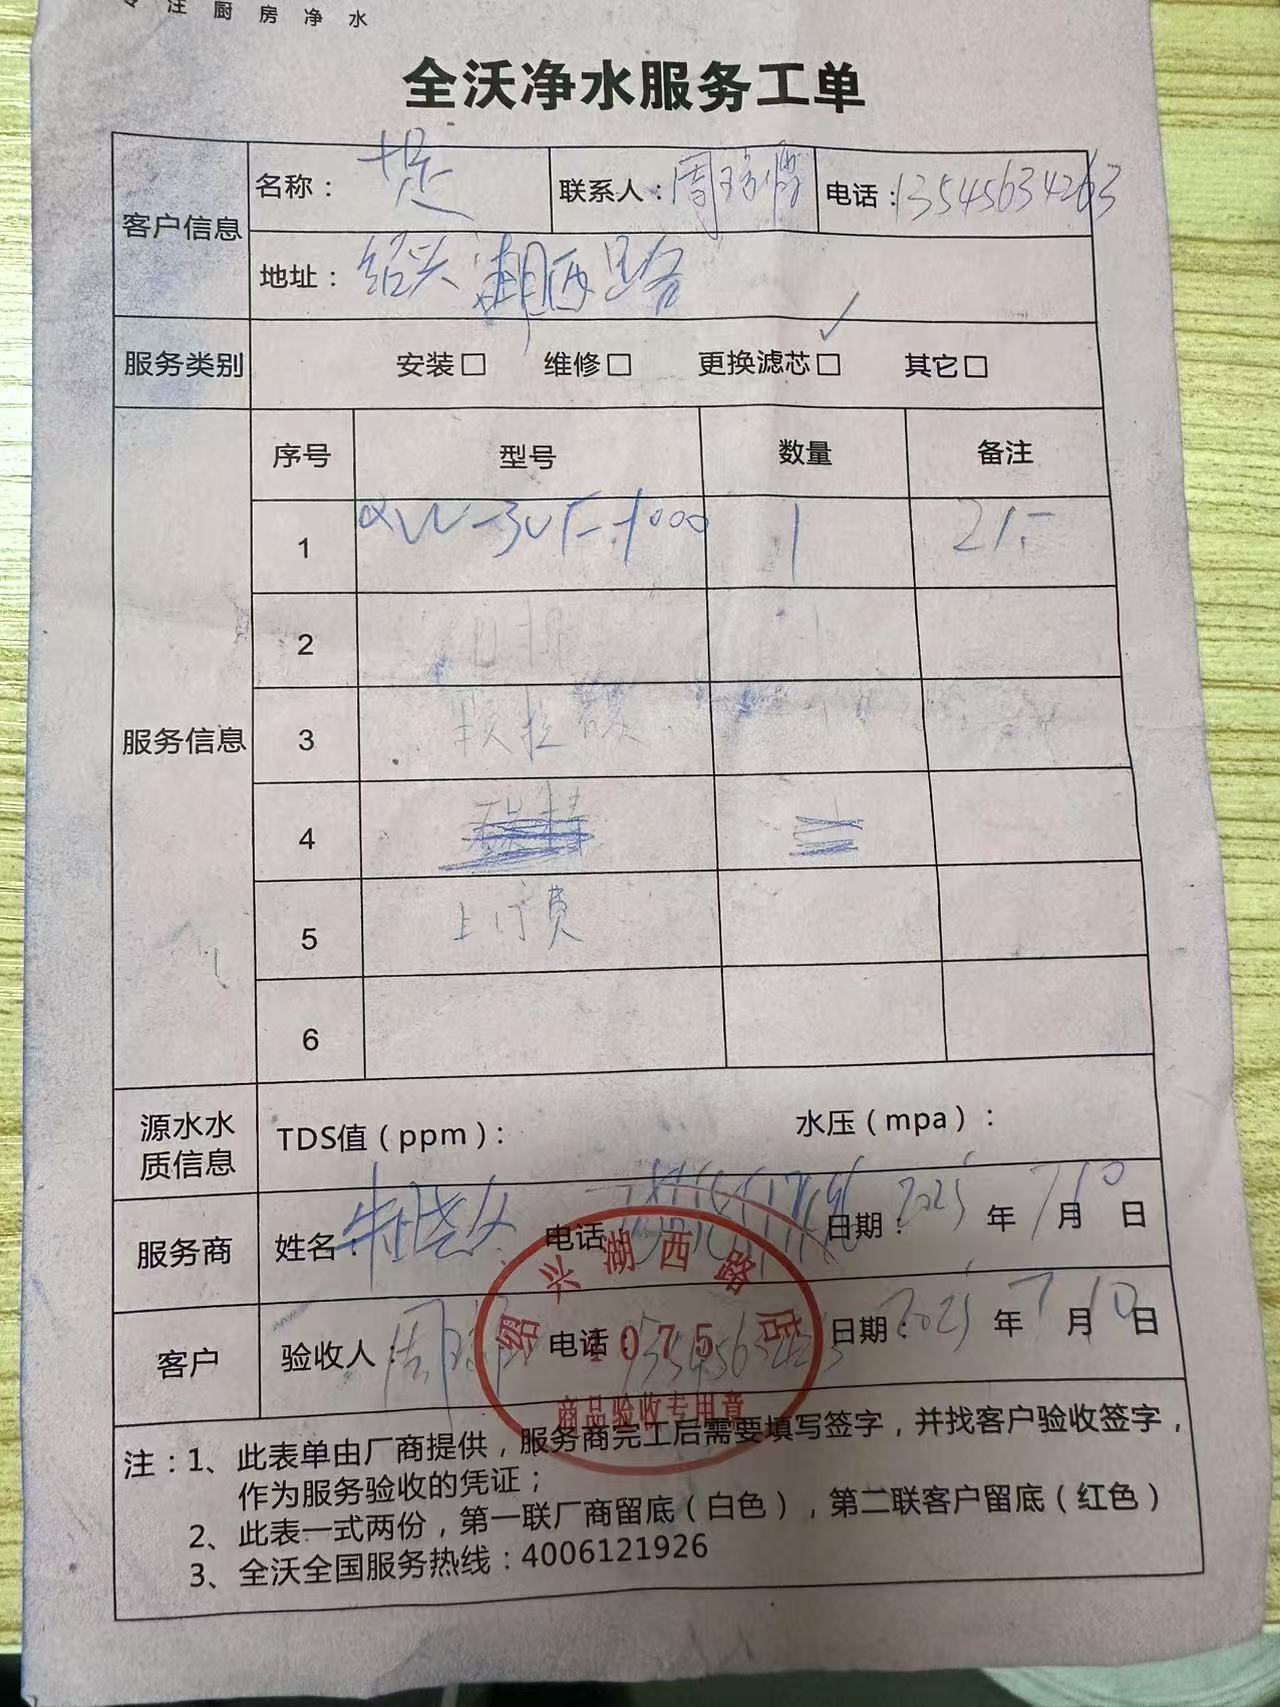 专注厨房净水
全沃净水服务工单
客户信息 名称： 联系人：周 电话：13545634263
地址：绍兴湖西路
服务类别 安装□ 维修□ 更换滤芯□ ✓ 其它□
服务信息 序号 型号 数量 备注
1 QW-3UF-1000 1 21.-
2
3 颗粒炭
4
5 上门费
6
源水水质信息 TDS值（ppm）： 水压（mpa）：
服务商 姓名： 电话： 日期：2025年7月10日
客户 验收人：周 电话：13545634263 日期：2025年7月10日
绍兴湖西路店
1075
商品验收专用章
注：1、此表单由厂商提供，服务商完工后需要填写签字，并找客户验收签字，
作为服务验收的凭证；
2、此表一式两份，第一联厂商留底（白色），第二联客户留底（红色）
3、全沃全国服务热线：4006121926